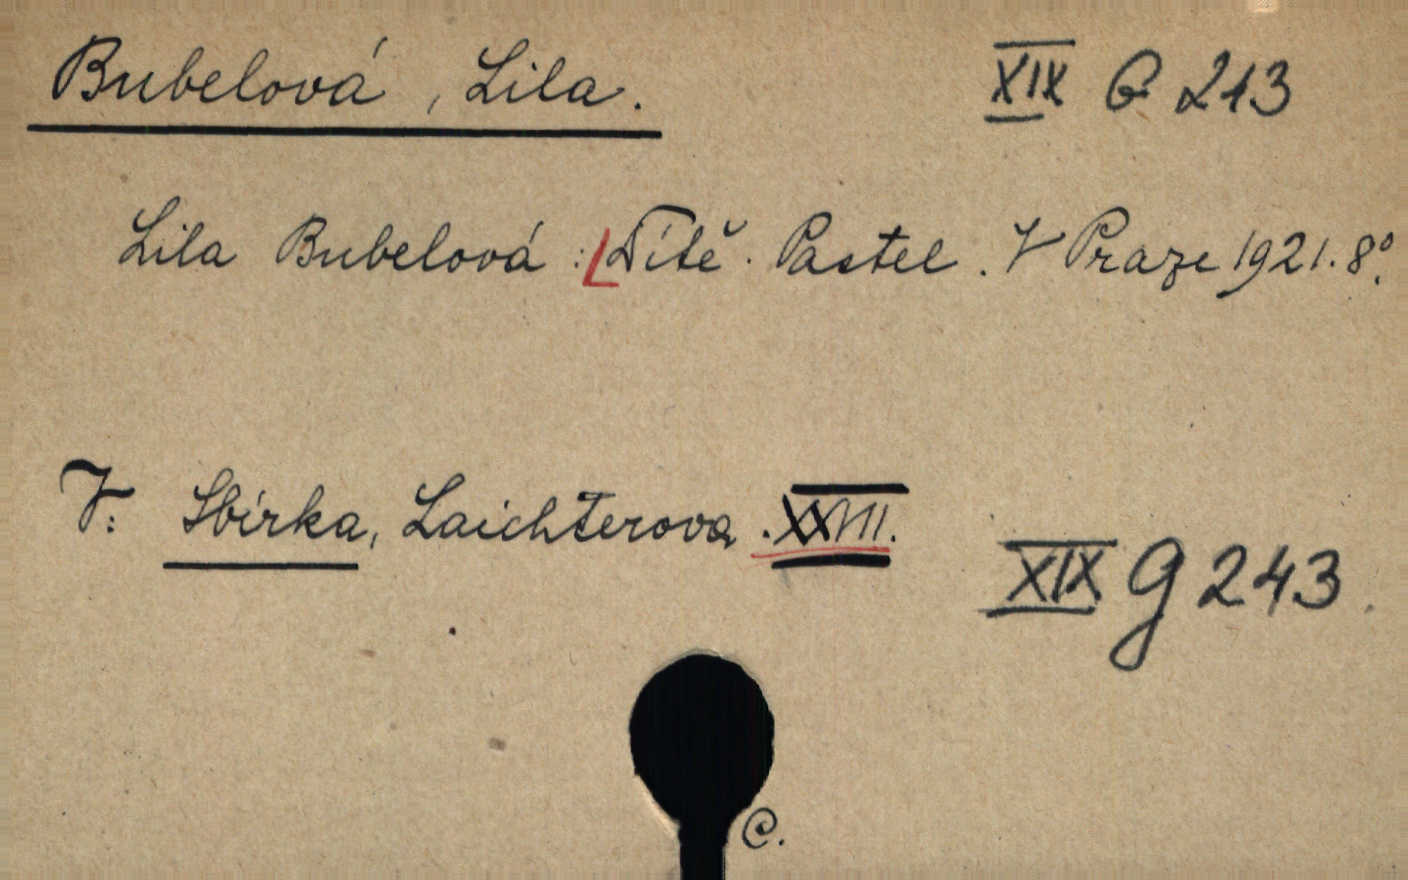 Bubelová, Lila. XIX G 243
Lila Bubelová: Dítě. Pastel. V Praze 1921. 8°.
V: Sbírka, Laichterova. XXVIII.
XIX G 243.
C.